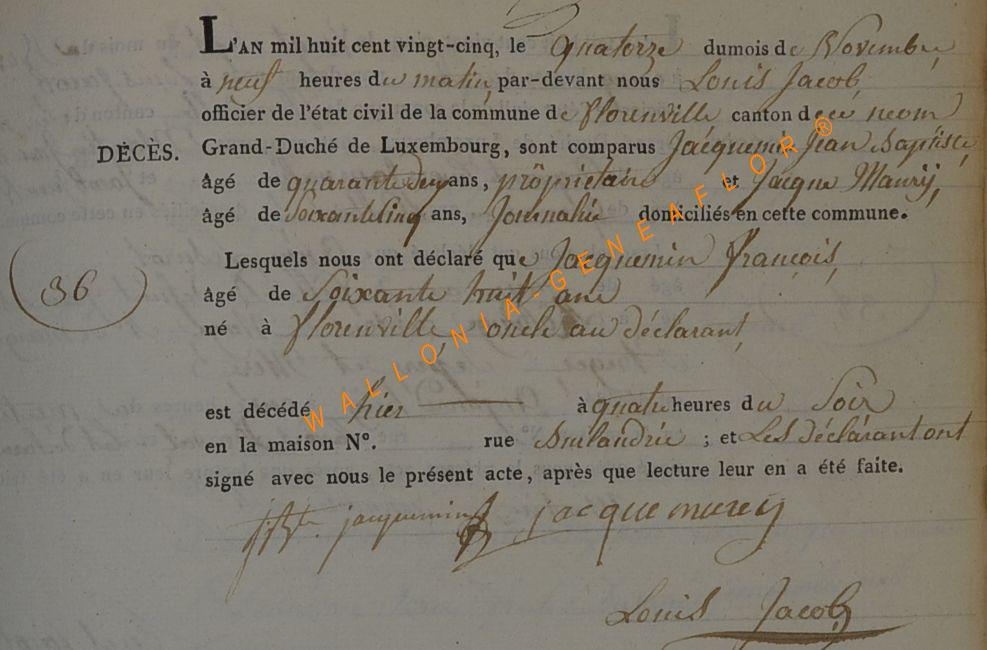 L'AN mil huit cent vingt-cinq, le quatorze du mois de Novembre
à neuf heures du matin, par-devant nous Louis Jacob,
officier de l'état civil de la commune de florenville canton de
DÉCÈS. Grand-Duché de Luxembourg, sont comparus Jacquemin Jean Baptiste,
âgé de quarante deux ans, propriétaire et Jacque Maurÿ,
âgé de Soixante Cinq ans, Journalié domiciliés en cette commune.
Lesquels nous ont déclaré que Jacquemin François,
36
âgé de Soixante huit ans
né à florenville, oncle au déclarant,
est décédé hier à quatre heures du Soir
en la maison N°. rue ; et Les déclarant ont
signé avec nous le présent acte, après que lecture leur en a été faite.
jacquemin jacque murey
Louis Jacob
WALLONIA-GENEAFLOR®